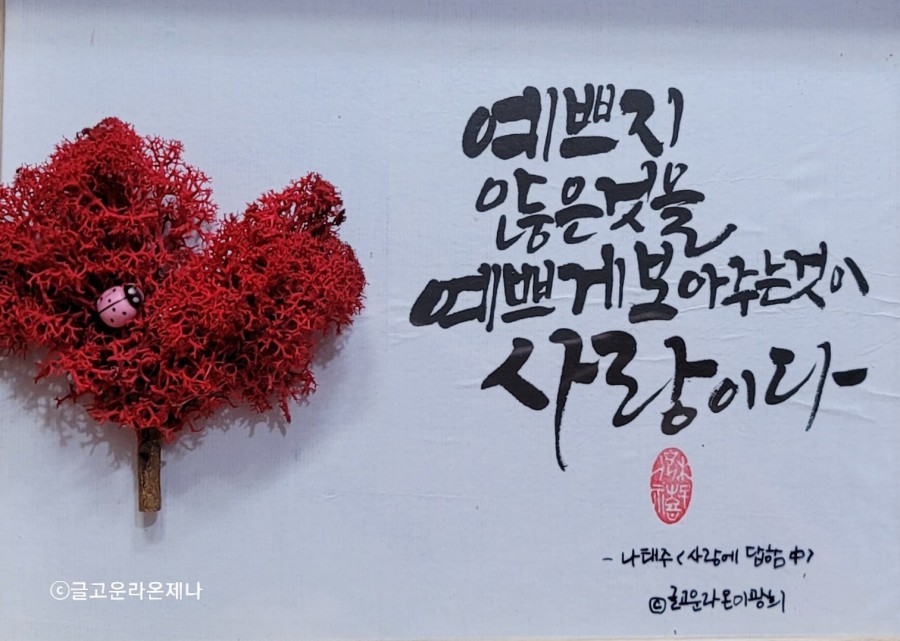 예쁘지
않은것을
예쁘게보아주는것이
사랑이다
- 나태주 <사랑에 답함 中>
©글고운라온이광희
©글고운라온제나